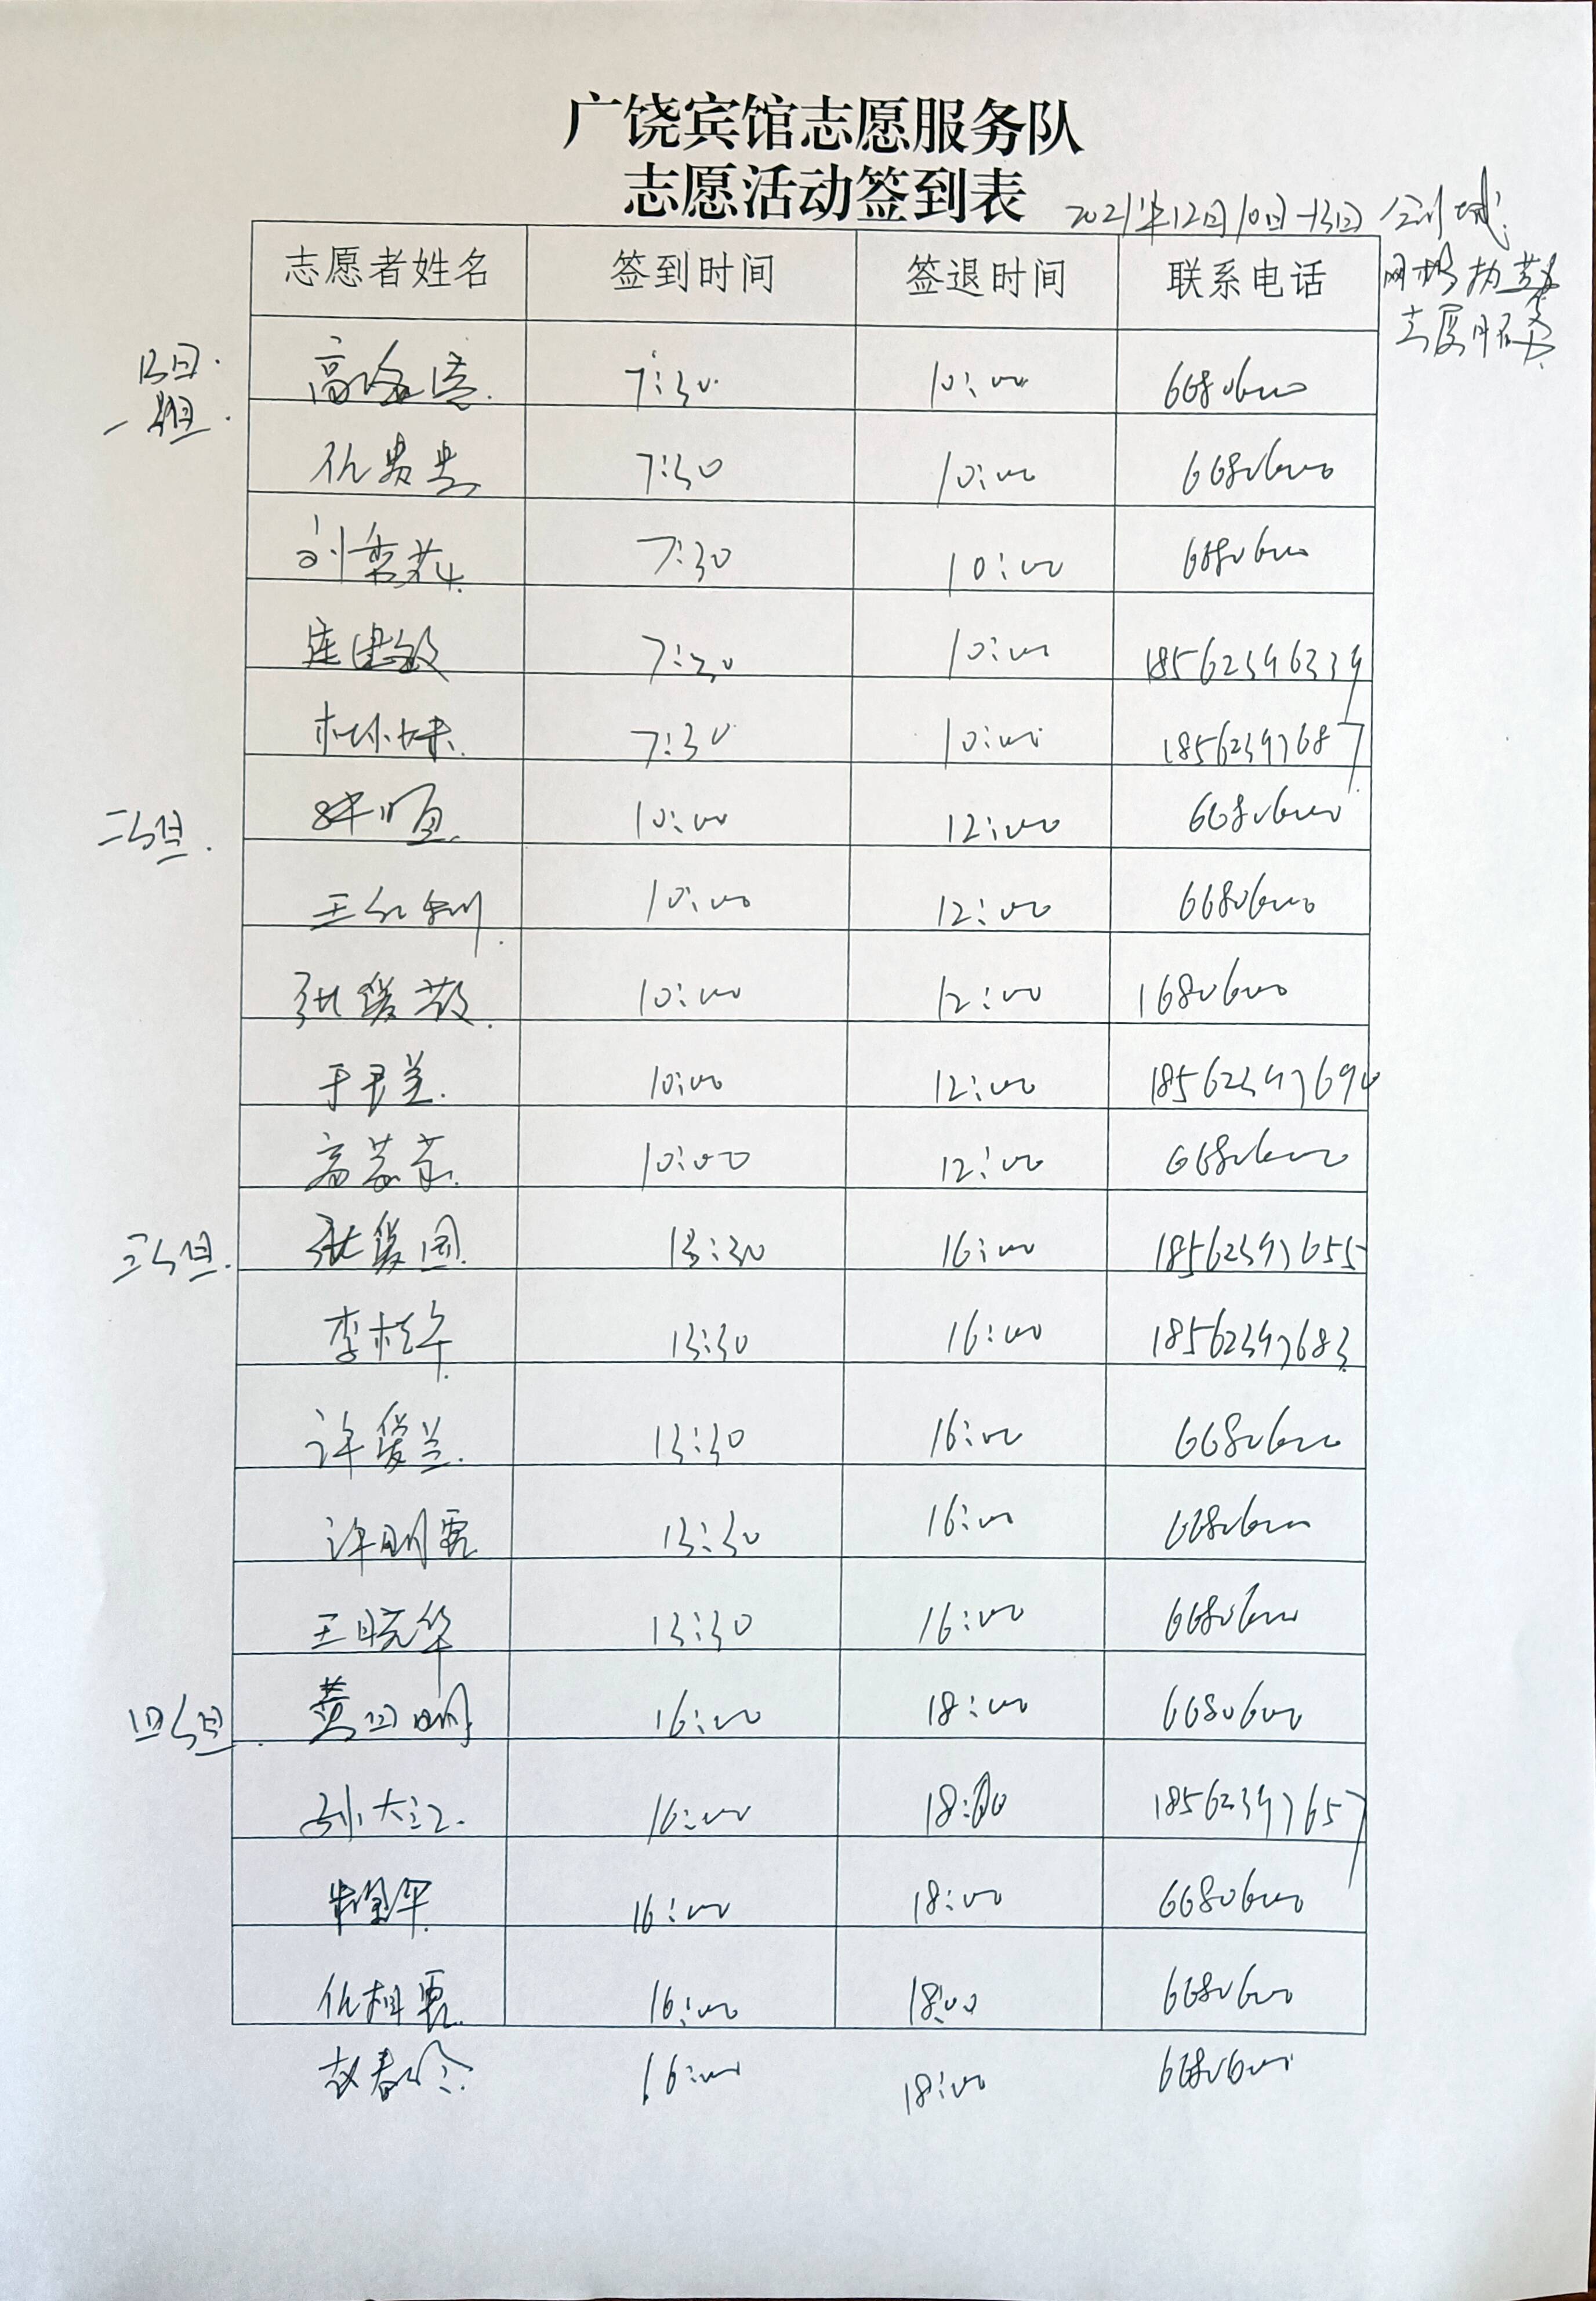 广饶宾馆志愿服务队
志愿活动签到表
2021年12月10日-13日 全域
网格 志愿服务
志愿者姓名 签到时间 签退时间 联系电话
13日.
一组.
7:30 10:00 6680600
仇贵芸 7:30 10:00 6680600
7:30 10:00 6680600
7:30 10:00 18562396339
杜小妹. 7:30 10:00 18562397687
二组.
10:00 12:00 6680600
王红 10:00 12:00 6680600
张爱 10:00 12:00 1680600
于君兰. 10:00 12:00 18562397690
高 10:00 12:00 6680600
三组.
张爱国. 13:30 16:00 18562397655
李 13:30 16:00 18562397683
许爱兰. 13:30 16:00 6680600
许明霞 13:30 16:00 6680600
王晓华 13:30 16:00 6680600
四组.
黄 明 16:00 18:00 6680600
孙大江. 16:00 18:00 18562397657
16:00 18:00 6680600
仇相霞. 16:00 18:00 6680600
赵春玲. 16:00 18:00 6680600